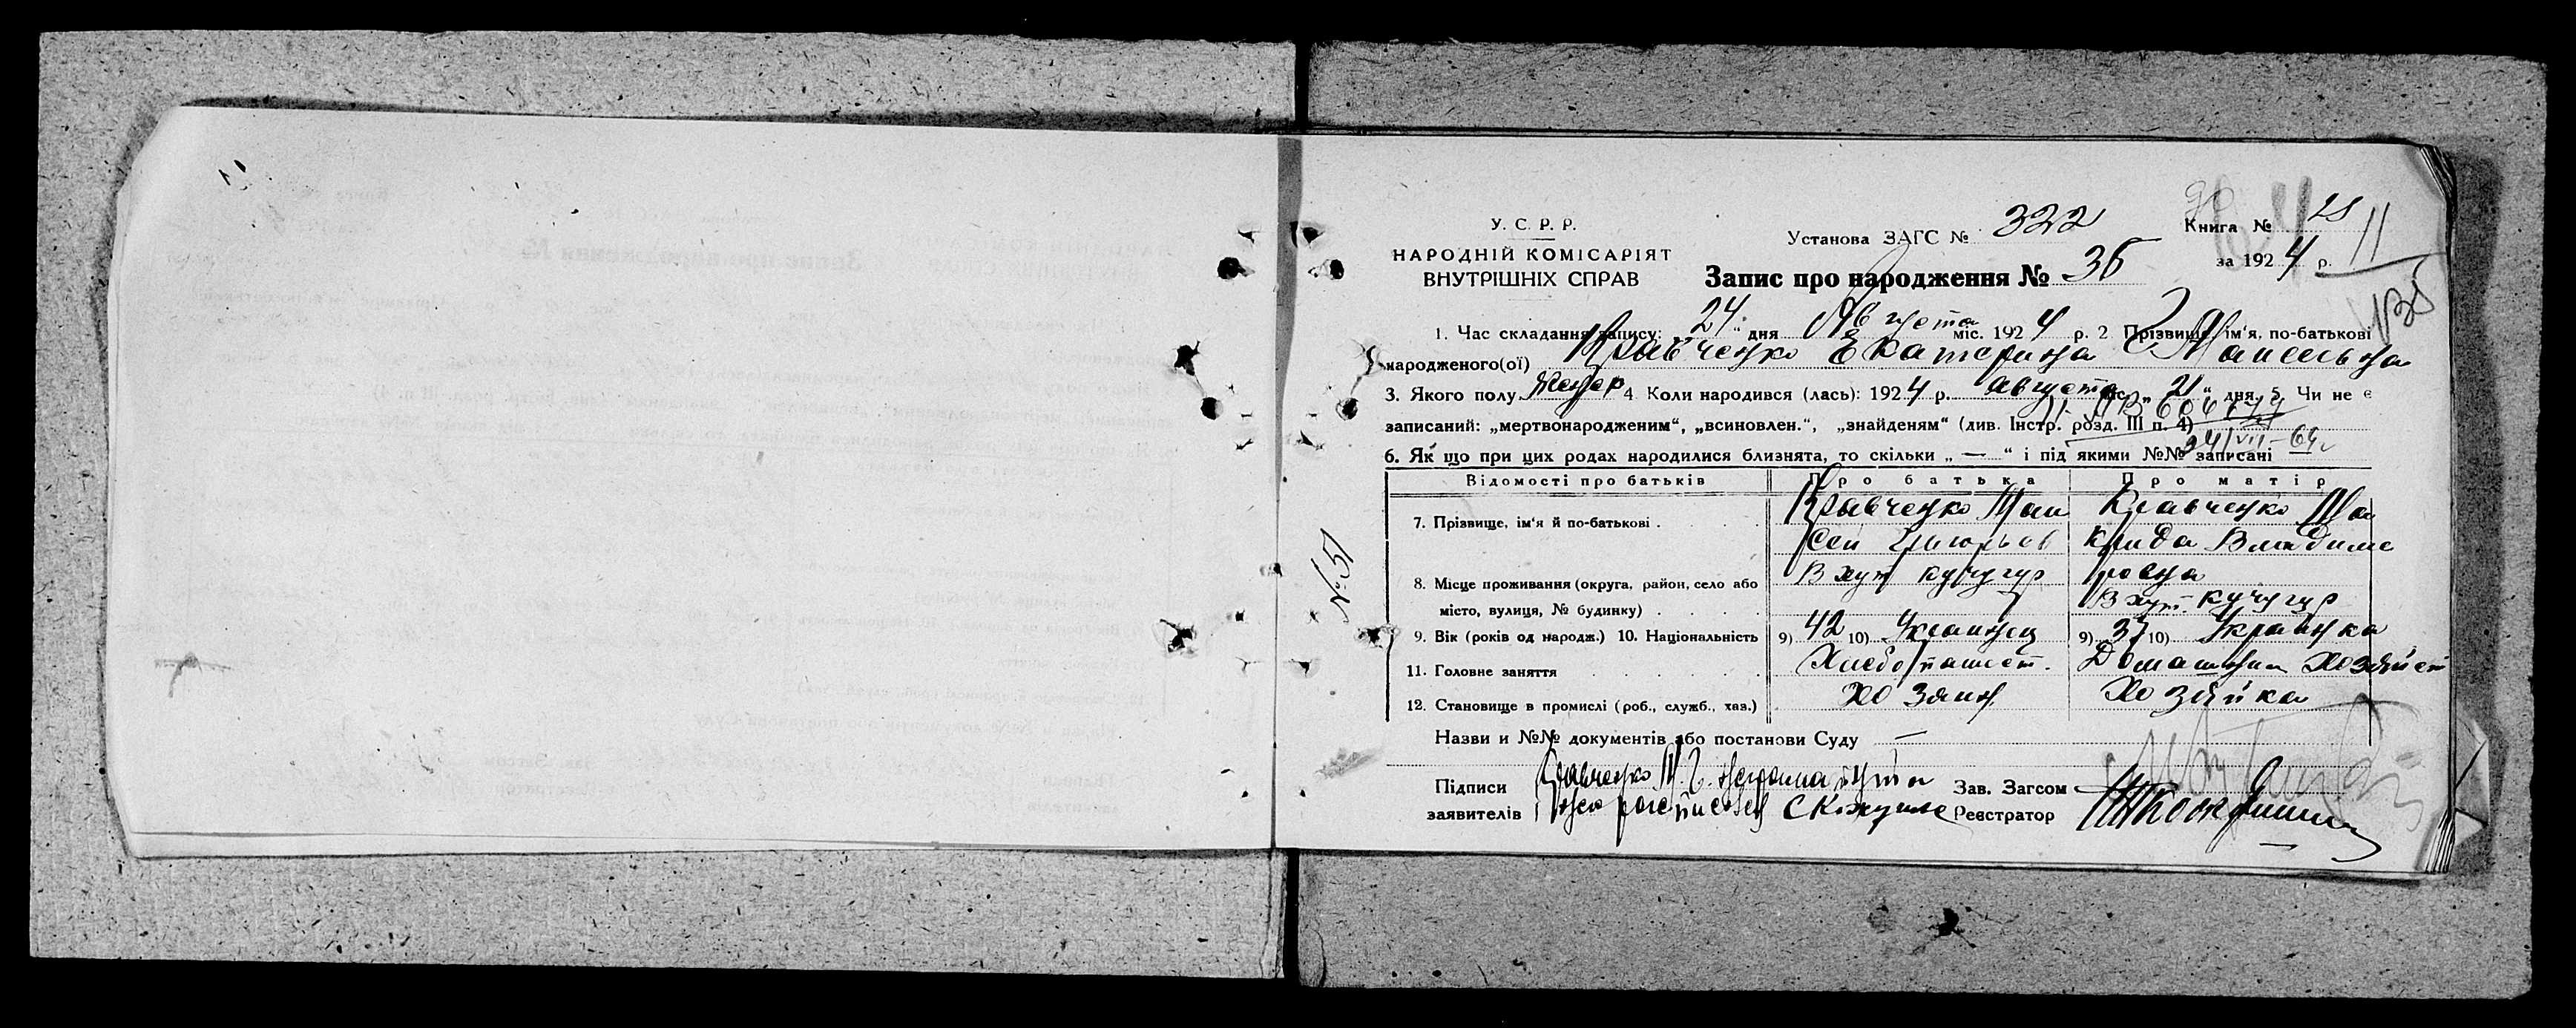 У. С. Р. Р.
НАРОДНІЙ КОМІСАРІЯТ
ВНУТРІШНІХ СПРАВ
Установа ЗАГС № 322
Книга № 21
за 1924 р.
11
Запис про народження № 36
1. Час складання запису: „24“ дня Августа міс. 1924 р. 2 Прізвище, ім'я, по-батькові
народженого(ої) Кравченко Екатерина Маисеевна
3. Якого полу Женск 4. Коли народився (лась): 1924 р. августа міс. „21“ дня. 5. Чи не є
записаний: „мертвонародженим“, „всиновлен.“, „знайденям“ (див. Інстр. розд. III п. 4)
6. Як що при цих родах народилися близнята, то скільки „—“ і під якими №№ записані
24/VII-64
Відомості про батьків Про батька Про матір
7. Прізвище, ім'я й по-батькові Кравченко Маи Кравченко Ма
сей Григорьев крида Владими
ровна
8. Місце проживання (округа, район, село або В хут кучугур
місто, вулиця, № будинку) В хут. кучугур
9. Вік (років од народж.) 10. Національність 9) 42 10) Украинец 9) 37 10) Украинка
11. Головне заняття Хлебопашест. Домашния Хозяйст
12. Становище в промислі (роб., служб., хаз.) Хозяин Хозяйка
Назви и №№ документів або постанови Суду —
Підписи Кравченко М. Г. неграматин а
заявителів него росписался
Зав. Загсом
Реєстратор
№ 51